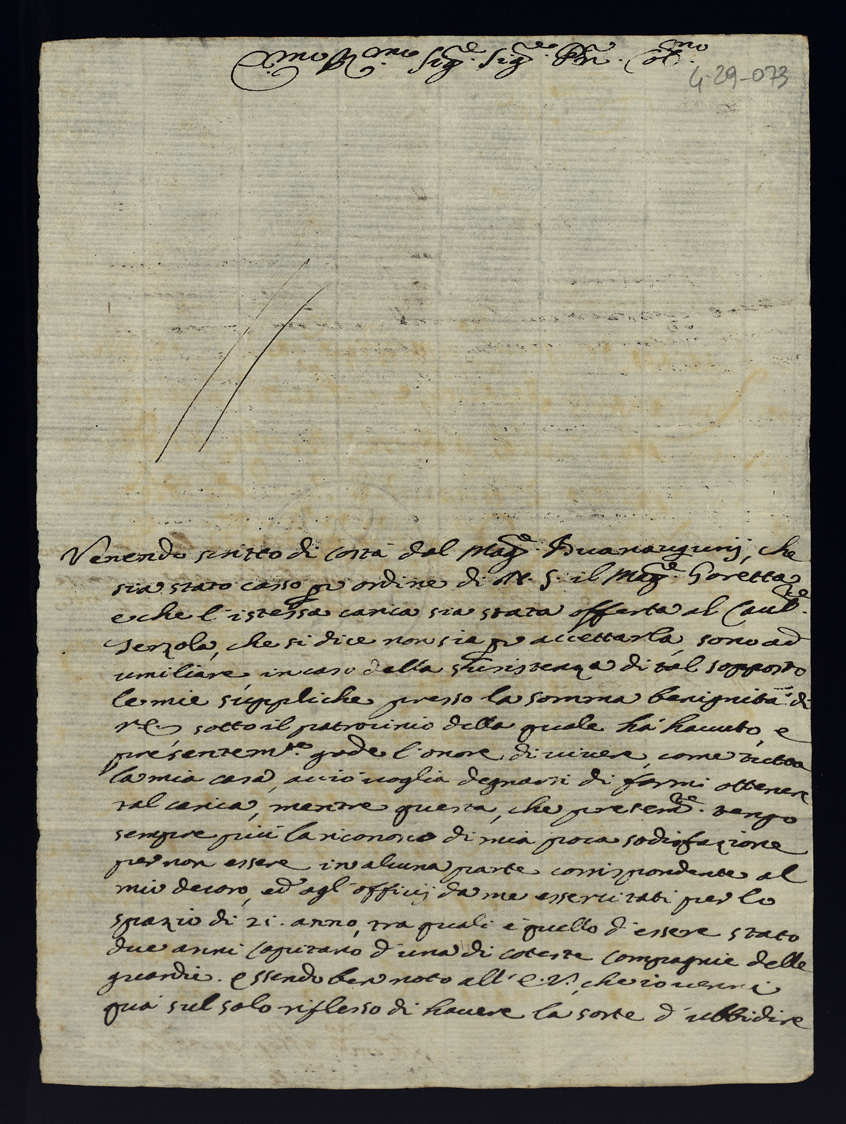 E.mo R.mo Sig.re Sig.re P.rn Col.mo
4-29-073
Venendo scritto di costà dal Mag.re Buanaugurij, che
sia stato casso per ordine di N. S. il Mag.re Goretta
e che l'istessa carica sia stata offerta al Caub.re
Serzola, che si dice non sia per accettarla, sono ad
umiliare in caso della sussistenza di tal supposto
le mie suppliche presso la somma benignità di
V.E. sotto il patrocinio della quale hà havuto, e
presentem.te gode l'onore di vivere, come tutta
la mia casa, acciò voglia degnarsi di farmi ottenere
tal carica, mentre questa, che presen.te tengo
sempre più la riconosco di mia poca sodisfazione
per non essere in alcuna parte corrispondente al
mio decoro, ed agl'officij da me essercitati per lo
spazio di 21. anno, tra quali è quello d'essere stato
due anni Capitano d'una di coteste Compagnie delle
guardie. Essendo ben noto all'E.V., che io venni
quà sul solo riflesso di havere la sorte d'ubbidire